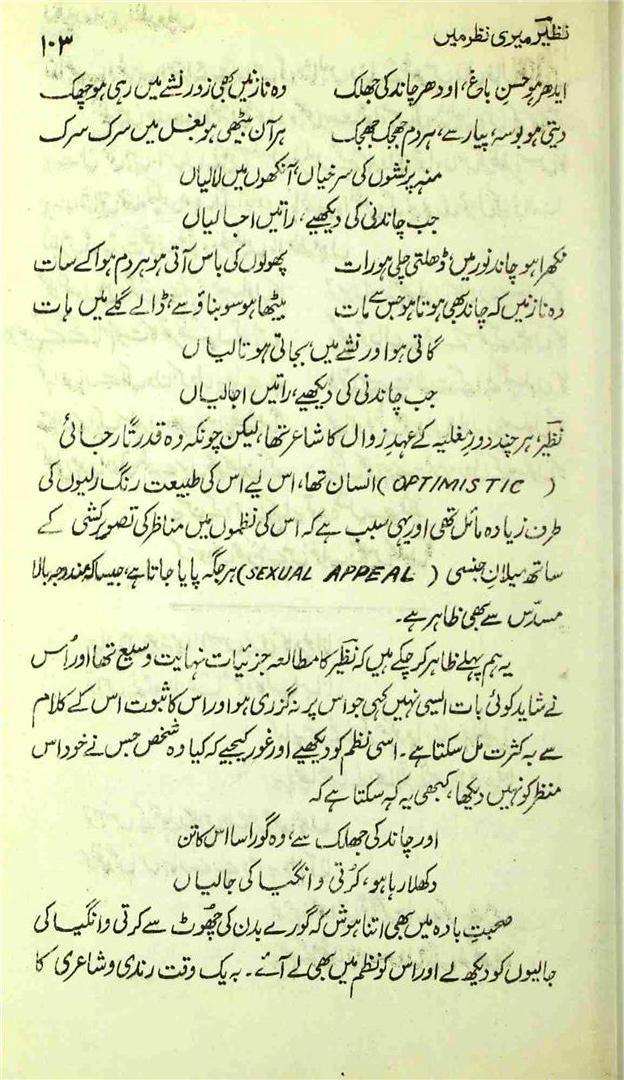 نظیر میری نظر میں
۱۰۳
ایدھر ہو حسنِ باغ، اودھر چاند کی جھلک وہ نازنیں بھی زور نشے میں رہی ہو چھک
دیتی ہو بوسہ، پیار سے، ہر دم جھجک جھجک ہر آن بیٹھی ہو بغل میں سرک سرک
منہ پر نشوں کی سرخیاں، آنکھوں میں لالیاں
جب چاندنی کی دیکھیے، راتیں اجالیاں
نکھرا ہو چاند نور میں، ڈھلتی چلی ہو رات پھولوں کی باس آتی ہو ہر دم ہوا کے سات
وہ نازنیں کہ چاند بھی ہوتا ہو جس سے مات بیٹھا ہو سو بناؤ سے، ڈالے گلے میں ہات
گاتی ہو اور نشے میں، بجاتی ہو تالیاں
جب چاندنی کی دیکھیے، راتیں اجالیاں
نظیر، ہر چند دورِ مغلیہ کے عہدِ زوال کا شاعر تھا، لیکن چونکہ وہ قدرتاً رجائی
(OPTIMISTIC) انسان تھا، اس لیے اس کی طبیعت رنگ رلیوں کی
طرف زیادہ مائل تھی اور یہی سبب ہے کہ اس کی نظموں میں مناظر کی تصویر کشی کے
ساتھ میلانِ جنسی (SEXUAL APPEAL) ہر جگہ پایا جاتا ہے، جیسا کہ مندرجہ بالا
مسدّس سے بھی ظاہر ہے۔
یہ ہم پہلے ظاہر کر چکے ہیں کہ نظیر کا مطالعہ جزئیات نہایت وسیع تھا اور اُس
نے شاید کوئی بات ایسی نہیں کہی جو اس پر نہ گزری ہو اور اس کا ثبوت اس کے کلام
سے بہ کثرت مل سکتا ہے۔ اسی نظم کو دیکھیے اور غور کیجیے کہ کیا وہ شخص جس نے خود اس
منظر کو نہیں دیکھا، کبھی یہ کہہ سکتا ہے کہ
اور چاند کی جھلک سے، وہ گورا سا اس کا تن
دکھلا رہا ہو، کُرتی و انگیا کی جالیاں
صحبتِ بادہ میں بھی اتنا ہوش کہ گورے بدن کی چھوٹ سے کرتی و انگیا کی
جالیوں کو دیکھ لے اور اس کو نظم میں بھی لے آئے۔ بہ یک وقت رندی و شاعری کا